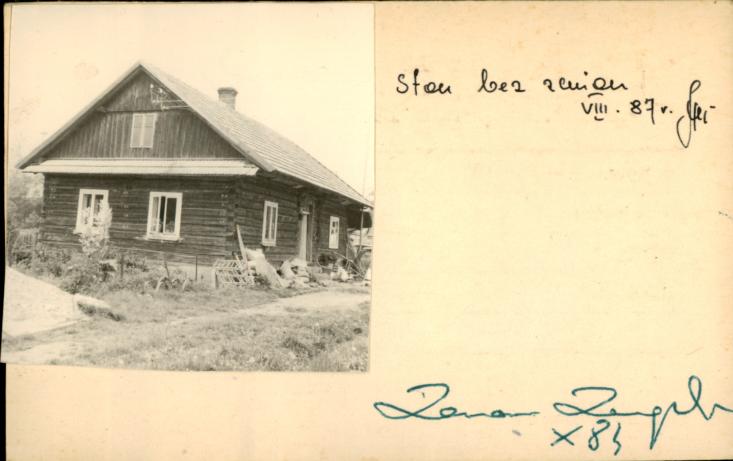 Stan bez zmian
VIII. 87 r.
Zenon
X 84